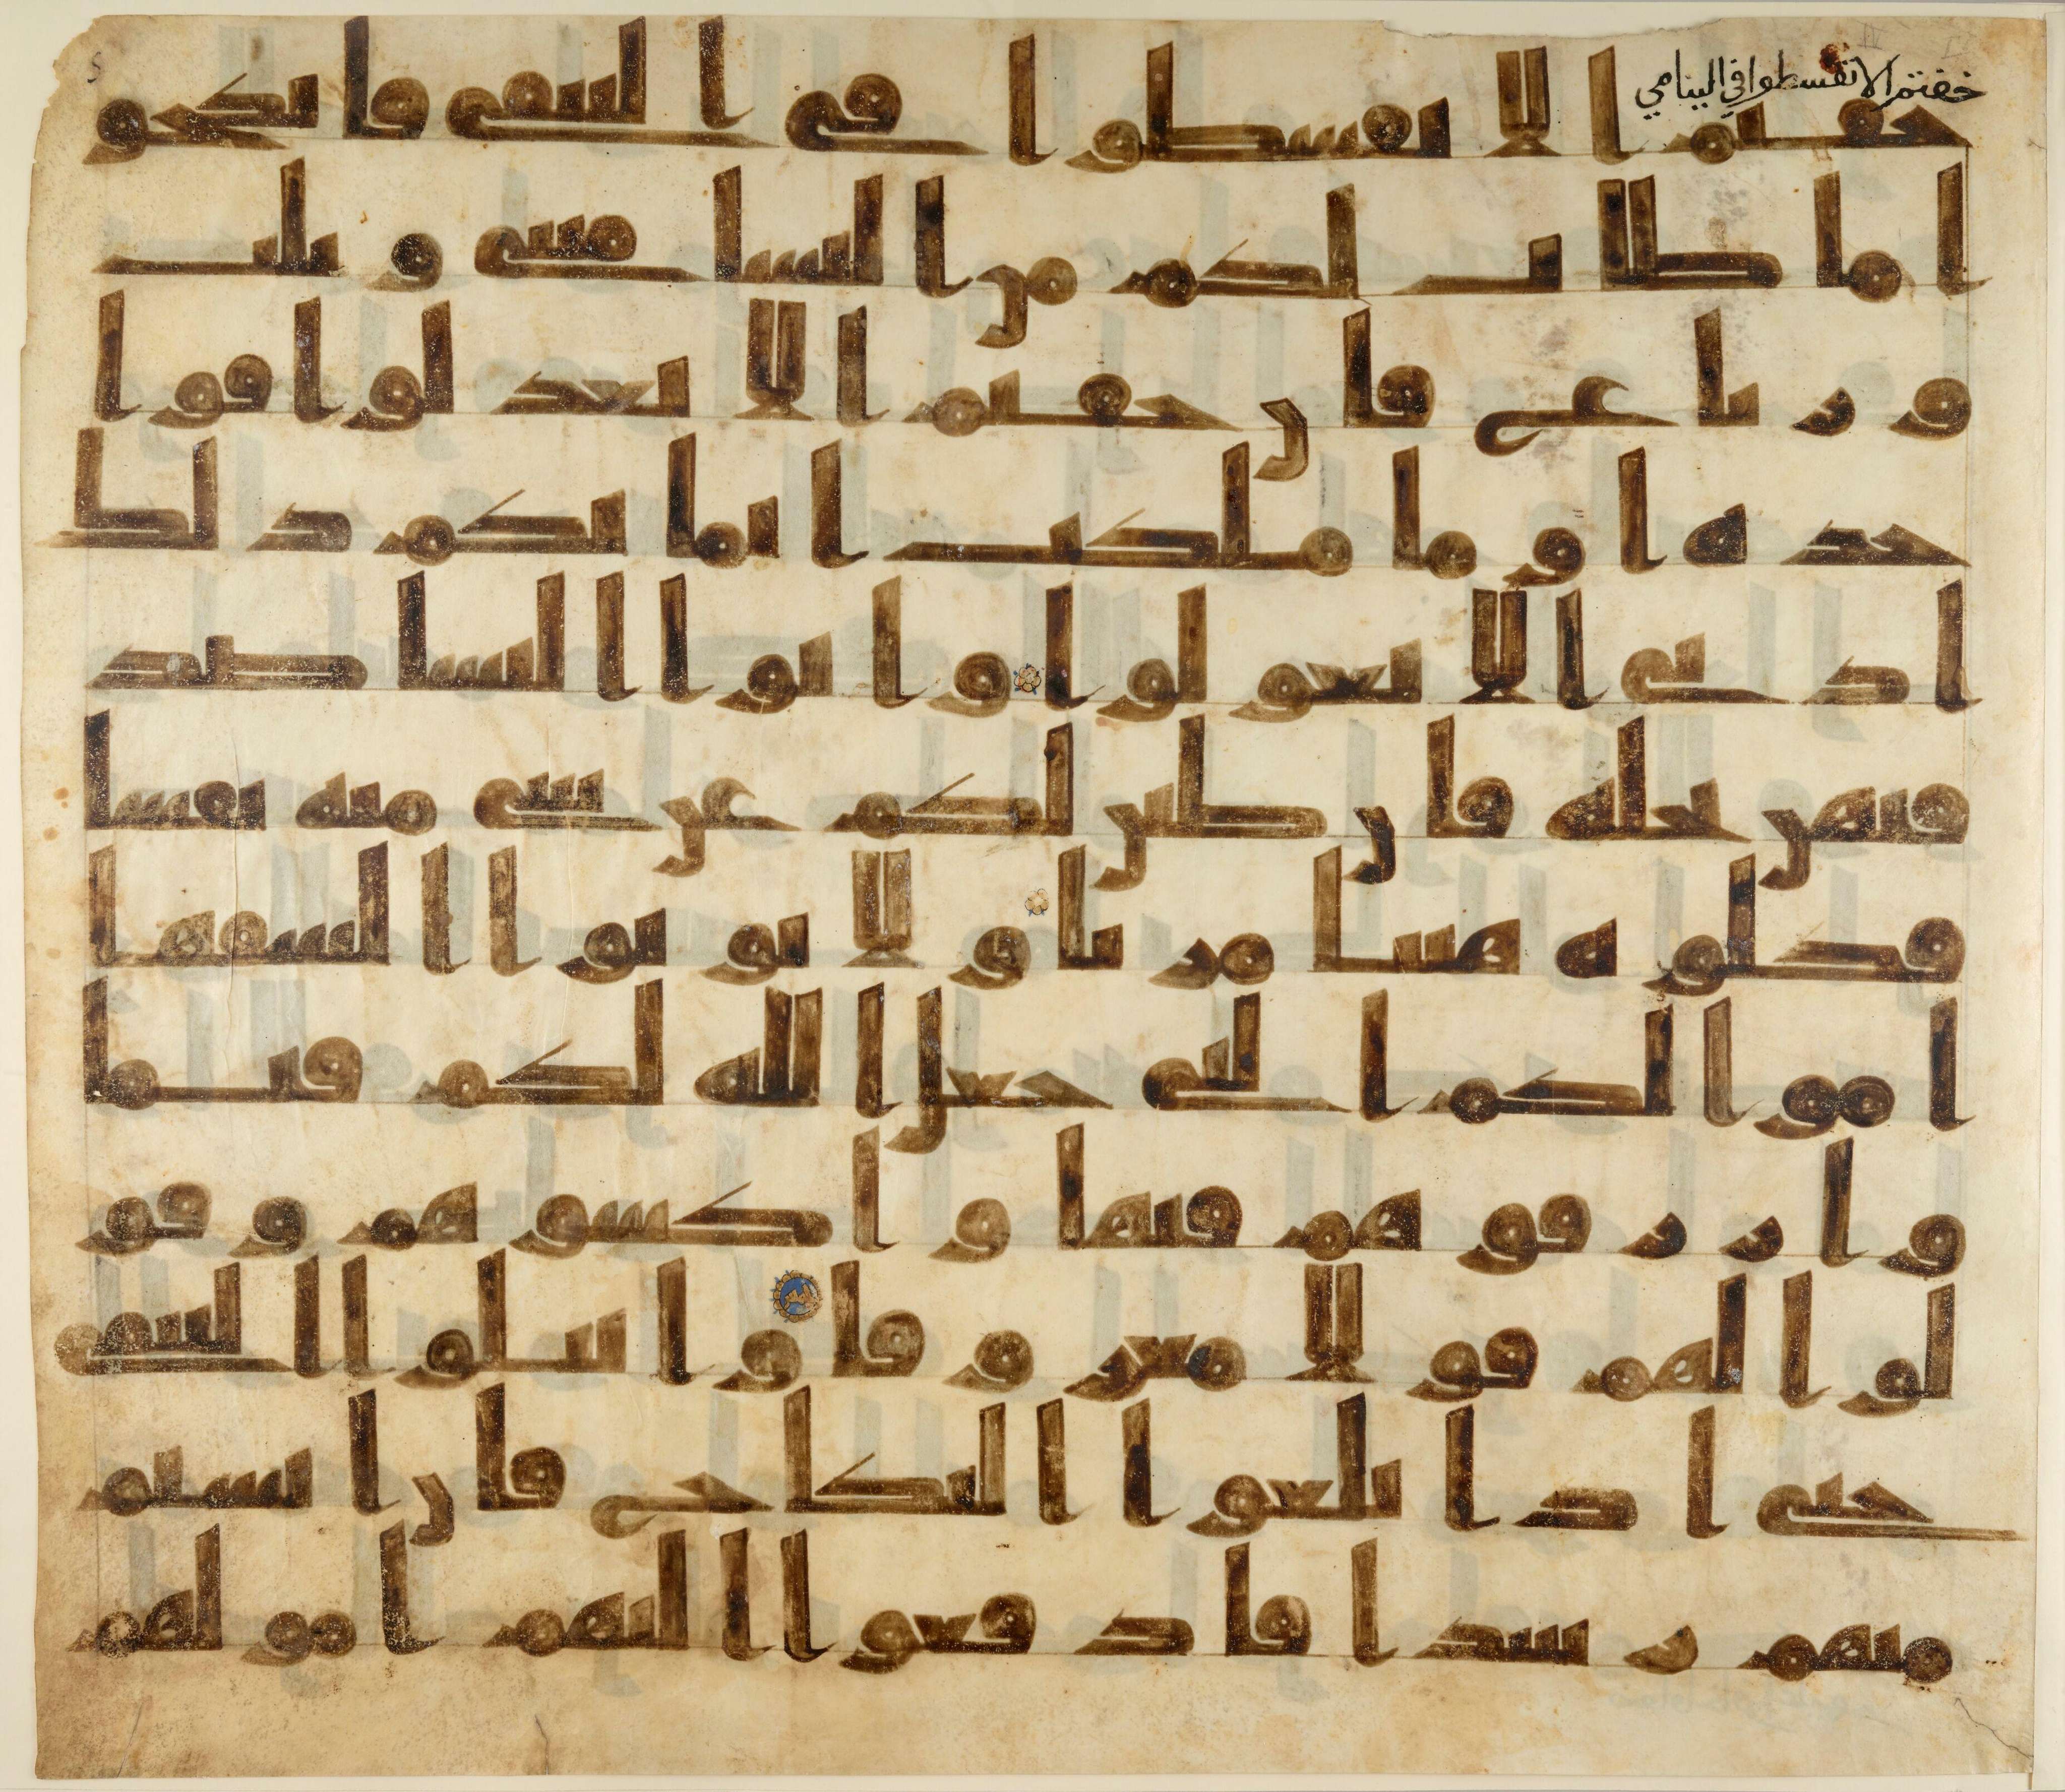 خفتم الا تقسطوا في اليتامي
خفتم الا تقسطوا في اليتمى فانكحو
ا ما طاب لكم من النسا مثنى وثلث
ورباع فان خفتم الا تعدلوا فوا
حده او ما ملكت ايمانكم ذلك
ادنى الا تعولوا واتوا النسا صد
قتهن نحله فان طبن لكم عن شى منه نفسا
فكلوه هنيا مريا ولا توتوا السفها
اموالكم التى جعل الله لكم قيما
وارزقوهم فيها واكسوهم وقو
لوا لهم قولا معروفا وابتلوا اليتمى
حتى اذا بلغوا النكاح فان انستم
منهم رشدا فادفعوا اليهم امولهم